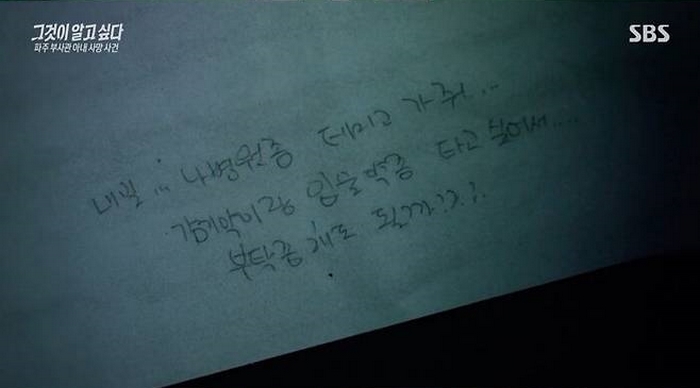 그것이 알고 싶다
파주 부사관 아내 사망 사건
SBS
내일... 나 병원좀 데리고 가줘...
감기약이랑 입술약좀 타고 싶어서....
부탁좀해도 될까?.?.?